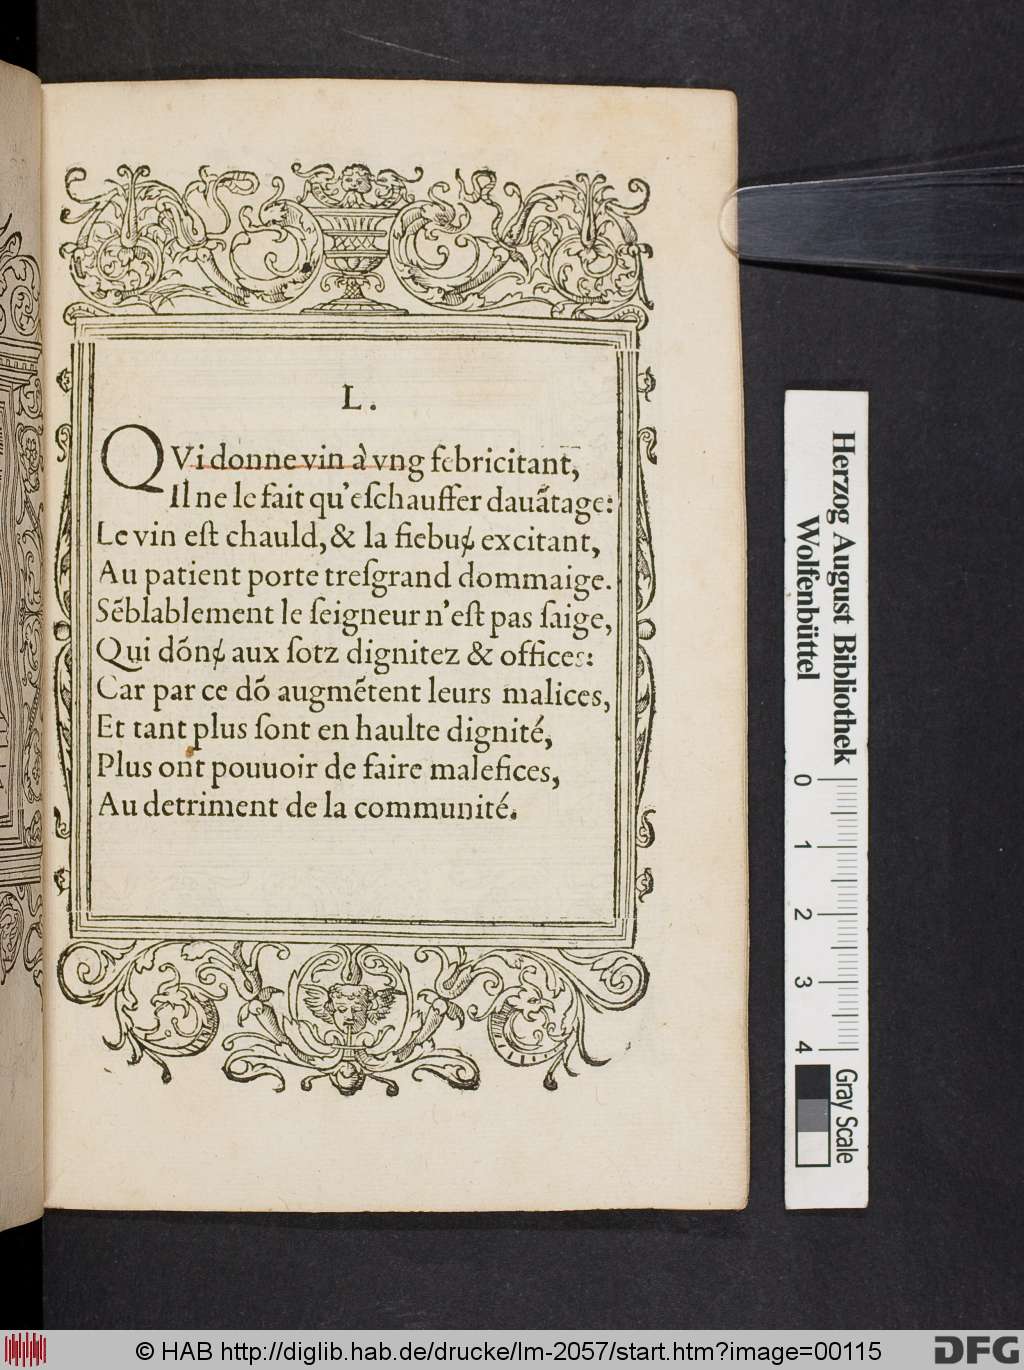 L.
QVi donne vin à vng febricitant,
Il ne le fait qu'eſchauffer dauãtage:
Le vin eſt chauld, & la fiebuɇ excitant,
Au patient porte treſgrand dommaige.
Sẽblablement le ſeigneur n'eſt pas ſaige,
Qui dõnɇ aux ſotz dignitez & offices:
Car par ce dõ augmẽtent leurs malices,
Et tant plus ſont en haulte dignité,
Plus ont pouuoir de faire malefices,
Au detriment de la communité.
Herzog August Bibliothek
Wolfenbüttel
0 1 2 3 4
Gray Scale
© HAB http://diglib.hab.de/drucke/lm-2057/start.htm?image=00115
DFG